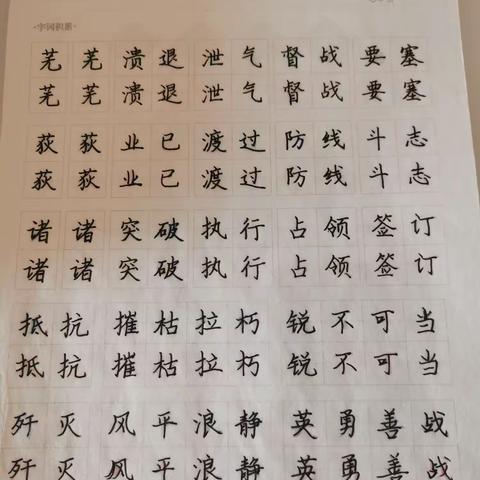 ·字词积累·
芜 芜 溃 退 泄 气 督 战 要 塞
芜 芜 溃 退 泄 气 督 战 要 塞
荻 荻 业 已 渡 过 防 线 斗 志
荻 荻 业 已 渡 过 防 线 斗 志
诸 诸 突 破 执 行 占 领 签 订
诸 诸 突 破 执 行 占 领 签 订
抵 抗 摧 枯 拉 朽 锐 不 可 当
抵 抗 摧 枯 拉 朽 锐 不 可 当
歼 灭 风 平 浪 静 英 勇 善 战
歼 灭 风 平 浪 静 英 勇 善 战